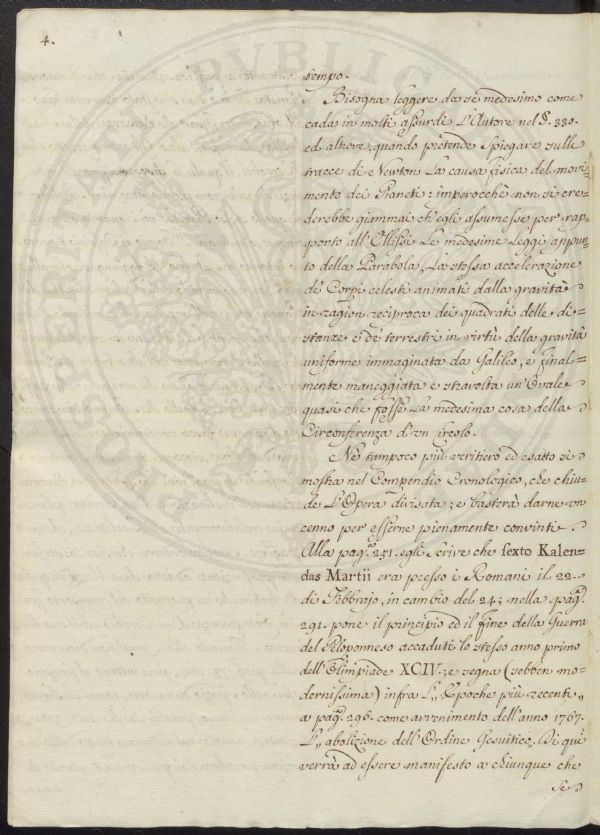 4.
tempo.
Bisogna leggere da se medesimo come
cada in molti assurdi l'Autore nel §. 330.
ed altrove, quando pretende spiegare sulle
tracce di Newton la causa fisica del movi=
mento dei Pianeti: imperocchè non si cre=
derebbe giammai ch'egli assumesse per rap=
porto all'Ellissi le medesime leggi appun=
to della Parabola, la stessa accelerazione
de' Corpi celesti animati dalla gravità
in ragion reciproca dei quadrati delle di=
stanze e de' terrestri in virtù della gravità
uniforme immaginata da Galileo, e final=
mente maneggiata e stravolta un'Ovale
quasi che fosse la medesima cosa della
Circonferenza d'un Circolo.
Nè tampoco più veritiero ed esatto si
mostra nel Compendio Cronologico, che chiu=
de l'Opera divisata; e basterà darne un
cenno per esserne pienamente convinti.
Alla pag.ª 251. egli scrive che sexto Kalen=
das Martii era presso i Romani il 22.
di Febbrajo, in cambio del 24; nella pag.ª
291. pone il principio ed il fine della Guerra
del Peloponneso accaduti lo stesso anno primo
dell'Olimpiade XCIV.; e segna (sebben mo=
dernissima) infra l'„ Epoche più recenti „
a pag.ª 296. come avvenimento dell'anno 1767.
l'„ abolizione dell'Ordine Gesuitico. Di quì
verrà ad essere manifesto a chiunque che
se
PROSPERITATI PUBLIC